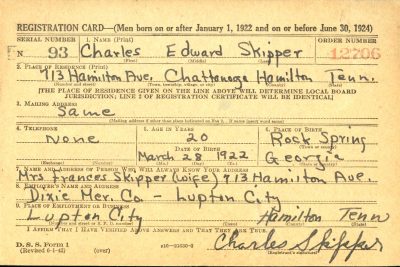 REGISTRATION CARD—(Men born on or after January 1, 1922 and on or before June 30, 1924)
SERIAL NUMBER 1. NAME (Print) ORDER NUMBER
N 93 Charles Edward Skipper 12706
(First) (Middle) (Last)
2. PLACE OF RESIDENCE (Print)
713 Hamilton Ave. Chattanooga Hamilton Tenn.
(Number and street) (Town, township, village, or city) (County) (State)
[THE PLACE OF RESIDENCE GIVEN ON THE LINE ABOVE WILL DETERMINE LOCAL BOARD
JURISDICTION; LINE 2 OF REGISTRATION CERTIFICATE WILL BE IDENTICAL]
3. MAILING ADDRESS
Same
[Mailing address if other than place indicated on line 2. If same insert word same]
4. TELEPHONE 5. AGE IN YEARS 6. PLACE OF BIRTH
None 20 Rock Spring
DATE OF BIRTH (Town or county)
March 28 1922 Georgia
(Exchange) (Number) (Mo.) (Day) (Yr.) (State or country)
7. NAME AND ADDRESS OF PERSON WHO WILL ALWAYS KNOW YOUR ADDRESS
Mrs Frances Skipper (Wife) 713 Hamilton Ave.
8. EMPLOYER'S NAME AND ADDRESS
Dixie Mer. Co – Lupton City
9. PLACE OF EMPLOYMENT OR BUSINESS
Lupton City Hamilton Tenn
(Number and street or R. F. D. number) (Town) (County) (State)
I AFFIRM THAT I HAVE VERIFIED ABOVE ANSWERS AND THAT THEY ARE TRUE.
D. S. S. Form 1
(Revised 6-1-42) (over) Charles Skipper
(Registrant's signature)